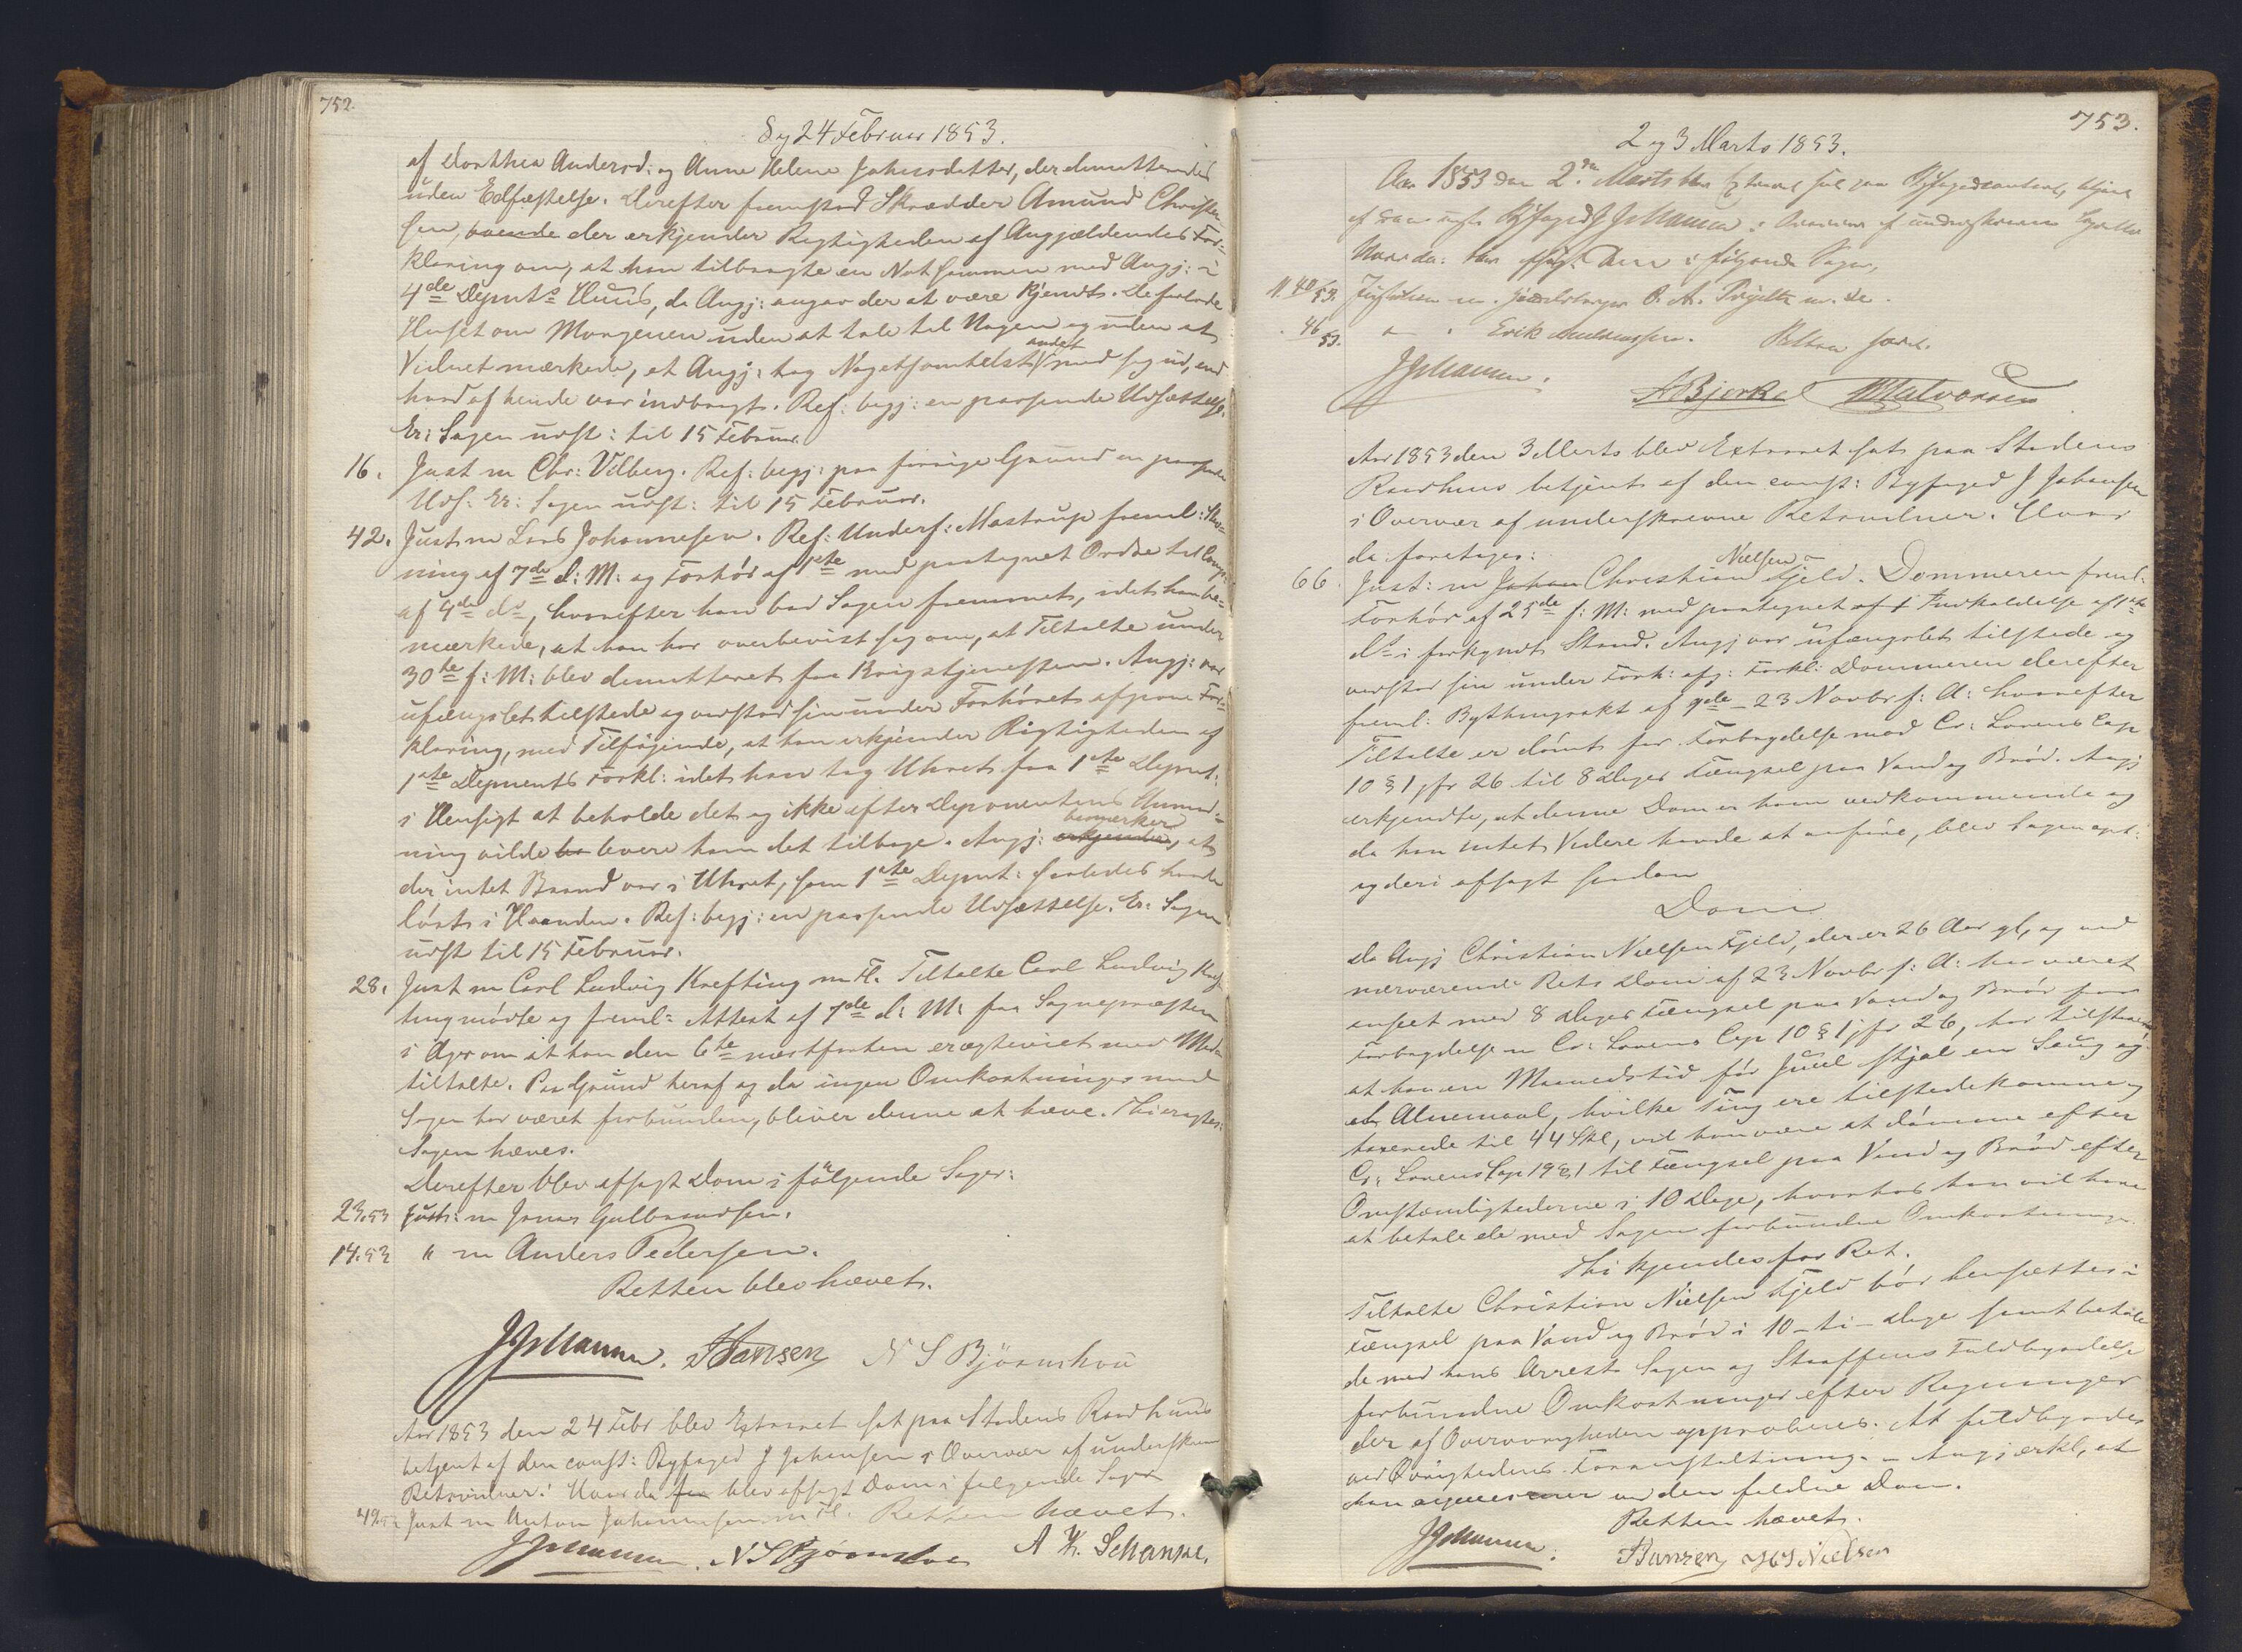 752.
8 og 24 Februar 1853.
af Dorthea Andersd: og Anne Helene Johnsdatter, der demitteredes
uden Edfæstelse. Derefter fremstod Skrædder Amund Christen
sen, boende der erkjender Rigtigheden af Angjældendes For-
klaring om, at han tilbragte en Nat sammen med Angj: i
4de Depnts Huus, da Angj: angav der at være kjendt. De forlode
Huset om Morgenen uden at tale til Nogen og uden at
Vidnet mærkede, at Angj: tog Nogetsomhelst andet med sig ud, end
hvad af hende var indbragt. Ref: begj: en passende Udsættelse.
Er: Sagen udst: til 15 Februar.
16. Just m Chr: Vilberg. Ref: begj: paa forrige Grund en passende
Uds: Er: Sagen udst: til 15 Februar.
42. Just m Lars Johannesen. Ref: Underf: Mastrup freml: Stev-
ning af 7de d: M: og Forhör af 1ste med paategnet Ordre til
af 4de ds, hvorefter han bad Sagen fremmet, idet han be-
mærkede, at han har overbevist sig om, at Tiltalte under
30te f: M: blev demitteret fra Krigstjenesten. Angj: var
ufængslet tilstede og vedstod sin under Forhöret afgivne For-
klaring, med Tilföiende, at han erkjender Rigtigheden af
1ste Deponents Forkl: idet han tog Uhret fra 1ste Depnt:
i Hensigt at beholde det og ikke efter Deponentens Anmod-
ning vilde levere ham det tilbage. Angj: erkjender bemærker, at
der intet Baand var i Uhret, som 1ste Depnt: saaledes havde
löst i Haanden. Ref: begj: en passende Udsættelse. Er: Sagen
udst til 15 Februar.
28. Just m Carl Ludvig Krefting m Fl. Tiltalte Carl Ludvig Kref
ting mödte og freml: Attest af 7de d: M: fra Sognepræsten
i Ager om at han den 6te næstforhen er ægteviet med Med
tiltalte. Paa Grund heraf og da ingen Omkostninger med
Sagen har været forbunden, bliver denne at hæve. Thi eragtes:
Sagen hæves.
Derefter blev afsagt Dom i fölgende Sager:
23.53 Just: m Jonas Gulbrandsen.
14.53 " m Anders Pedersen.
Retten blev hævet.
JJohansen. Hansen N S Bjørnshou
Aar 1853 den 24 Febr blev Extraret sat paa Stadens Raadhuus
betjent af den const: Byfoged J Johansen i Overvær af underskrevne
Retsvidner. Hvorda blev afsagt Dom i fölgende Sager
Just m Anton Johannesen m Fl. Retten hævet.
JJohansen. N S Bjørnshou A Schanke.
753.
2 og 3 Marts 1853.
Aar 1853 den 2den Marts blev Extraret sat paa Byfogedcontoret, betjent
af den const. Byfoged J Johansen i Overvær af underskrevne
Hvorda blev afsagt Dom i fölgende Sager,
40/53. Justitien m.
46/53. Erik Retten hævet.
JJohansen. A Bjerke Halvorsen
Aar 1853 den 3 Marts blev Extraret sat paa Stadens
Raadhuus betjent af den const: Byfoged J Johansen
i Overvær af underskrevne Retsvidner. Hvor
da foretages:
66. Just: m Johan Christian Nielsen Fjeld. Dommeren freml:
Forhör af 25de f: M: med paategnet Indkaldelse af 1ste
ds i forkyndt Stand. Angj var ufængslet tilstede og
vedstod sin under Forh: afg: Forkl: Dommeren derefter
freml: Bythingsakt af 9de - 23 Novbr f: A: hvorefter
Tiltalte er dömt for Forbrydelse mod Cr: Lovens Cap
10 § 1 jfr 26 til 8 Dages Fængsel paa Vand og Bröd. Angj
erkjendte, at denne Dom er ham vedkommende og
da han intet Videre havde at anföre, blev Sagen opt:
og deri afsagt saadan
Dom
Da Angj Christian Nielsen Fjeld, der er 26 Aar gl, og ved
nærværende Rets Dom af 23 Novbr f: A: har været
anseet med 8 Dages Fængsel paa Vand og Bröd for
Forbrydelse m Cr: Lovens Cap 10 § 1 jfr 26, har tilstaaet
at han en Maanedstid för Juul stjal en Saug og
et Alnemaal, hvilke Ting ere tilstedekomne og
taxerede til 44 Skl, vil han være at dömme efter
Cr: Lovens Cap 19 § 1 til Fængsel paa Vand og Bröd efter
Omstændighederne i 10 Dage, hvorhos han vil have
at betale de med Sagen forbundne Omkostninger.
Thi kjendes for Ret.
Tiltalte Christian Nielsen Fjeld bör hensættes i
Fængsel paa Vand og Bröd i 10 - ti - Dage samt betale
de med hans Arrest Sagen og Straffens Fuldbyrdelse
forbundne Omkostninger efter Regninger
der af Overövrigheden approberes. At fuldbyrdes
ved Övrighedens Foranstaltning. - Angj erkl, at
han er den faldne Dom.
Retten hævet.
JJohansen. Hansen Nielsen